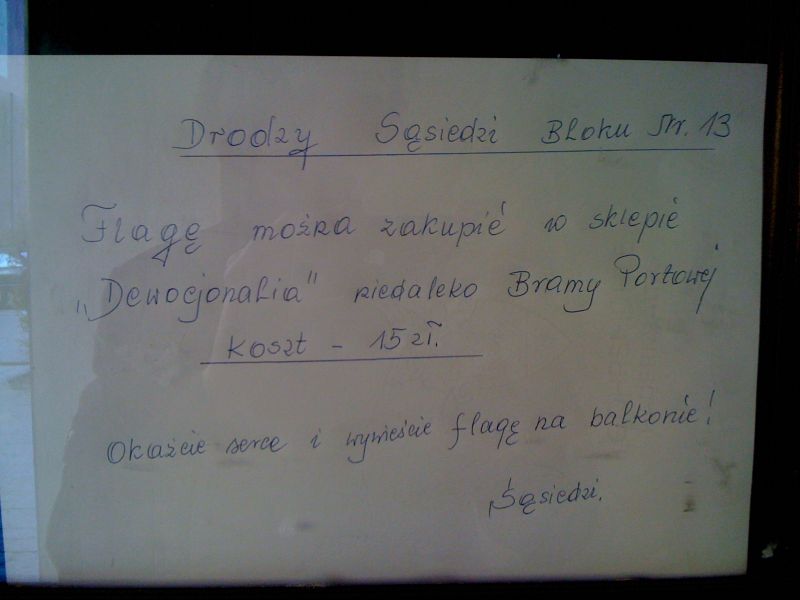 Drodzy Sąsiedzi Bloku Nr. 13
Flagę można zakupić w sklepie
„Dewocjonalia" niedaleko Bramy Portowej
koszt - 15 zł.
Okażcie serce i wywieście flagę na balkonie!
Sąsiedzi.